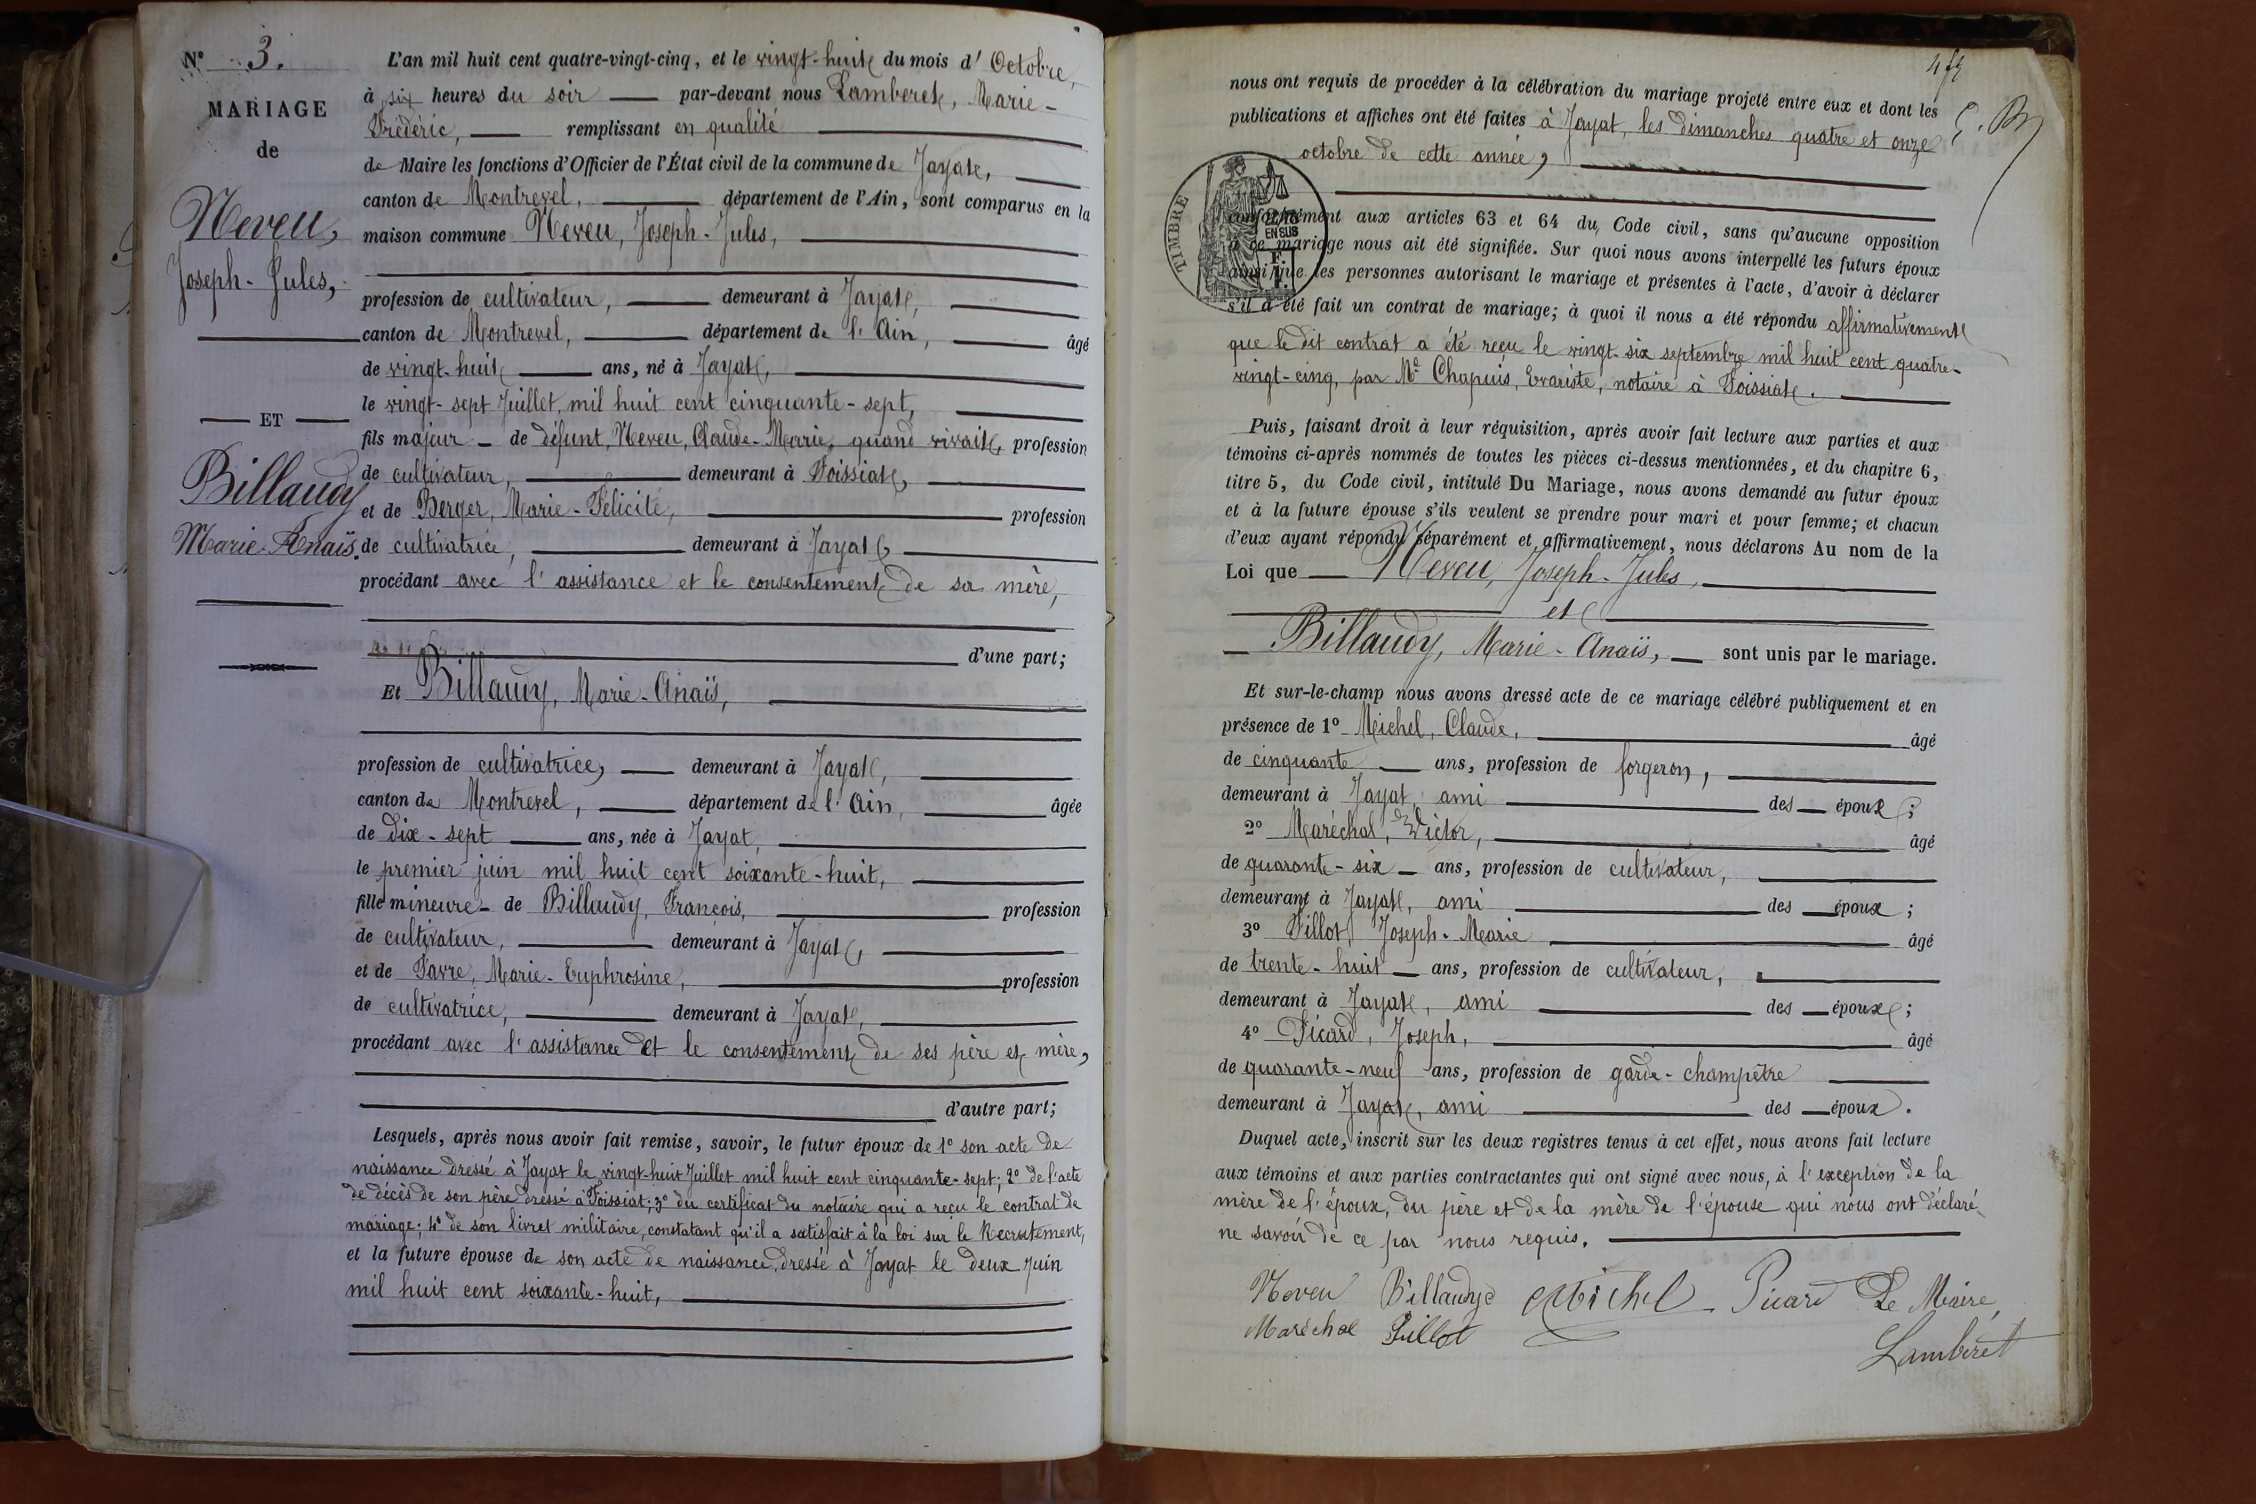 N° 3.
MARIAGE
de
Neveu,
Joseph-Jules,
ET
Billaudy
Marie-Anaïs.
L'an mil huit cent quatre-vingt-cinq, et le vingt-huit du mois d'Octobre,
à six heures du soir par-devant nous Lamberet, Marie-
Frédéric, remplissant en qualité
de Maire les fonctions d'Officier de l'État civil de la commune de Jayat,
canton de Montrevel, département de l'Ain, sont comparus en la
maison commune Neveu, Joseph-Jules,
profession de cultivateur, demeurant à Jayat,
canton de Montrevel, département de l'Ain, âgé
de vingt-huit ans, né à Jayat,
le vingt-sept Juillet, mil huit cent cinquante-sept,
fils majeur de défunt, Neveu, Claude-Marie, quand vivait, profession
de cultivateur, demeurant à Foissiat,
et de Berger, Marie-Félicité, profession
de cultivatrice, demeurant à Jayat,
procédant avec l'assistance et le consentement de sa mère,
d'une part;
Et Billaudy, Marie-Anaïs,
profession de cultivatrice, demeurant à Jayat,
canton de Montrevel, département de l'Ain, âgée
de dix-sept ans, née à Jayat,
le premier juin mil huit cent soixante-huit,
fille mineure de Billaudy, François, profession
de cultivateur, demeurant à Jayat,
et de Favre, Marie-Euphrosine, profession
de cultivatrice, demeurant à Jayat,
procédant avec l'assistance et le consentement de ses père et mère,
d'autre part;
Lesquels, après nous avoir fait remise, savoir, le futur époux de 1° son acte de
naissance dressé à Jayat le vingt-huit Juillet mil huit cent cinquante-sept; 2° de l'acte
de décès de son père dressé à Foissiat; 3° du certificat du notaire qui a reçu le contrat de
mariage; 4° de son livret militaire, constatant qu'il a satisfait à la loi sur le Recrutement,
et la future épouse de son acte de naissance, dressé à Jayat le deux Juin
mil huit cent soixante-huit,
nous ont requis de procéder à la célébration du mariage projeté entre eux et dont les
publications et affiches ont été faites à Jayat, les dimanches quatre et onze
octobre de cette année,
TIMBRE
2/10
EN SUS
conformément aux articles 63 et 64 du Code civil, sans qu'aucune opposition
à ce mariage nous ait été signifiée. Sur quoi nous avons interpellé les futurs époux
ainsi que les personnes autorisant le mariage et présentes à l'acte, d'avoir à déclarer
s'il a été fait un contrat de mariage; à quoi il nous a été répondu affirmativement
que le dit contrat a été reçu le vingt-six septembre mil huit cent quatre-
vingt-cinq, par Me Chapuis, Evariste, notaire à Foissiat.
Puis, faisant droit à leur réquisition, après avoir fait lecture aux parties et aux
témoins ci-après nommés de toutes les pièces ci-dessus mentionnées, et du chapitre 6,
titre 5, du Code civil, intitulé Du Mariage, nous avons demandé au futur époux
et à la future épouse s'ils veulent se prendre pour mari et pour femme; et chacun
d'eux ayant répondu séparément et affirmativement, nous déclarons Au nom de la
Loi que Neveu, Joseph-Jules,
et
Billaudy, Marie-Anaïs, sont unis par le mariage.
Et sur-le-champ nous avons dressé acte de ce mariage célébré publiquement et en
présence de 1° Michel, Claude, âgé
de cinquante ans, profession de forgeron,
demeurant à Jayat, ami des époux;
2° Maréchal, Victor, âgé
de quarante-six ans, profession de cultivateur,
demeurant à Jayat, ami des époux;
3° Pillot, Joseph-Marie âgé
de trente-huit ans, profession de cultivateur,
demeurant à Jayat, ami des époux;
4° Picard, Joseph, âgé
de quarante-neuf ans, profession de garde-champêtre
demeurant à Jayat, ami des époux.
Duquel acte, inscrit sur les deux registres tenus à cet effet, nous avons fait lecture
aux témoins et aux parties contractantes qui ont signé avec nous, à l'exception de la
mère de l'époux, du père et de la mère de l'épouse qui nous ont déclaré
ne savoir de ce par nous requis.
Neveu Billaudy Michel Picard Le Maire,
Maréchal Pillot
Lamberet